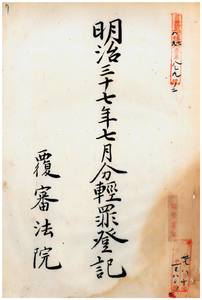 明治三十七年七月分輕罪登記
覆審法院